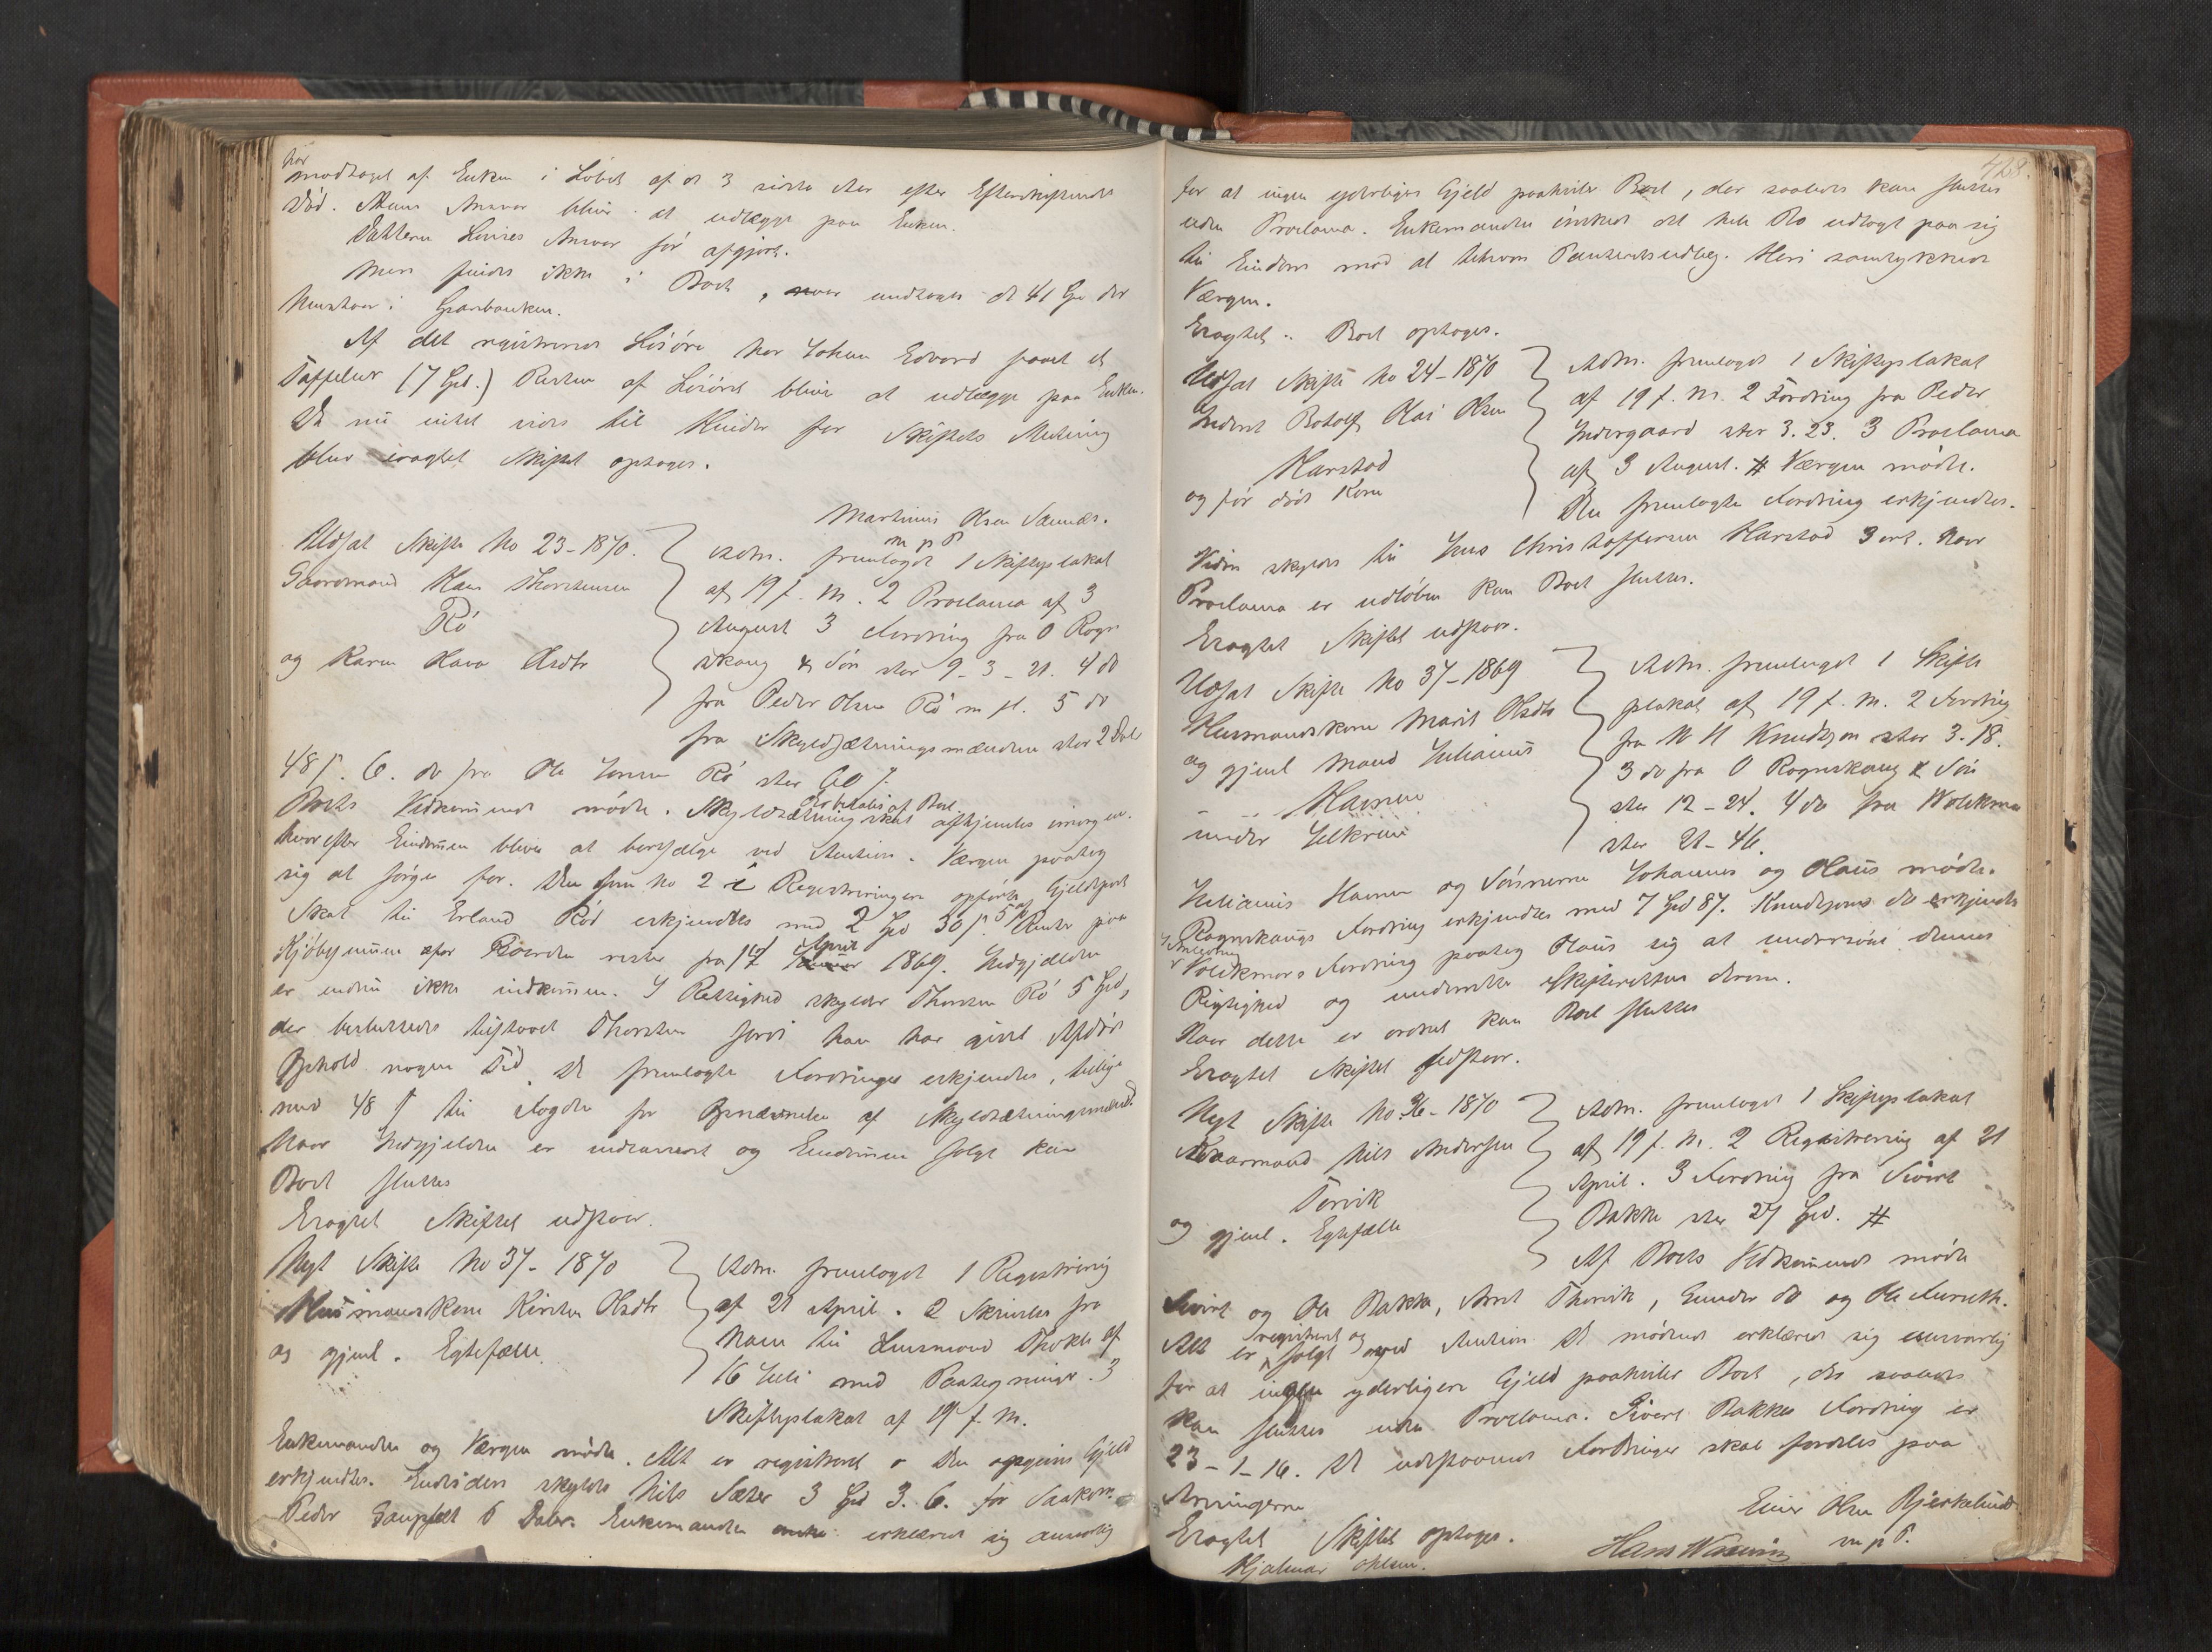 har
modtaget af Enken i Løbet af de 3 sidste Aar efter Efterskiftends
Død. Mans Ansvar bliver at udlægge paa Enken.
Datteren Lovises Ansvar før afgjort.
Mere findes ikke i Boet, undtages de 41 Spd der
henstaar i Sparebanken.
Af det registrerede Løsøre har Johan Edvard faaet et
Taffeluhr (7 Spd.) Resten af Løsøret bliver at udlægge paa Enken.
Da nu intet vides til Hinder for Skiftets Slutning
blev eragtet Skiftet optages.
Martinus Olsen Sannes.
m p P
Udsat Skifte No 23-1870.
Gaardmand Hans Thorstensen
Rø
og Karen Hava Olsdtr
Adm. fremlagde 1 Skifteplakat
af 19 f. M. 2 Proclama af 3
August 3 Fordring fra O Rogn
skoug & Søn stor 9-3-21. 4 do
fra Peder Olsen Rø m fl. 5 do
fra Skyldsætningsmændene stor 2 Dal
48 s. 6. do fra Ole Jonsen Rø stor 60 s.
Boets Vedkommende mødte. Skyldsætning skal afhjemles imorgen.
Er betalt af Boet
hvorefter Eindommen bliver at bortsælge ved Auktion. Værgen paatog
sig at sørge for. Den som No 2 i Registreringen opførte Gjeldspost
skal til Erland Rød erkjendtes med 2 Spd 30 s. 5 % af Renter paa
Kjøbesummen for Gaarden rester fra 14 April 1869. Hedgjælden
er endnu ikke indkommen. I Rettighed skylder Thorsten Rø 5 Spd,
der besluttedes tilstaaet Thorsten fordi han har givet Afdøde
Ophold nogen Tid. De fremlagte Fordringer erkjendtes, tillige
med 48 s til Fogden for Opnævnelse af Skyldsætningsmænd
Naar Hedgjelden er indcasseret og Eindommen solgt kan
Boet sluttes
Eragtet Skiftet udstaar.
Nyt Skifte No 37-1870
Husmandskone Kirsten Olsdtr
og gjenl. Egtefælle
Adm. fremlagde 1 Registrering
af 21 April. 2 Skrivelse fra
ham til Lensmand Thokle af
16 Juli med Paategninger. 3
Skifteplakat af 19 f. M.
Enkemanden og Værgen mødte. Alt er registreret. Den opgivne Gjeld
erkjendtes. Endvidere skyldes Nils Sæter 3 Spd 3. 6. for Saakorn
Peder Gaupset 6 Daler. Enkemanden erklærede sig ansvarlig
428.
for at ingen yderligere Gjeld paahviler Boet, der saaledes kan sluttes
uden Proclama. Enkemanden ønsket det hele Bo udlagt paa sig
til Eindom mod at tilsvare Panteretsudlæg. Heri samtykkede
Værgen.
Eragtet: Boet optages.
Udsat Skifte No 24-1870
Inderst Rotolf Olai Olsen
Harstad
og før døde Kone
Adm. fremlagde 1 Skifteplakat
af 19 f. M. 2 Fordring fra Peder
Indergaard stor 3. 23. 3 Proclama
af 3 August. # Værgen mødte.
Den fremlagte Fordring erkjendtes.
Videre skyldes til Jens Christoffersen Harstad 3 ort. Naar
Proclama er udløben kan Boet sluttes.
Eragtet Skiftet udstaar.
Udsat Skifte No 37-1869
Husmandskone Marit Olsdtr
og gjenl Mand Julianus
Havnen
under Jelkrem
Adm. fremlagde 1 Skifte
plakat af 19 f. M. 2 Fordring
fra N H Knudtzon stor 3. 18.
3 do fra O Rognskaug & Søn
stor 12-24. 4 do fra Wolckmar
stor 21-46.
Julianus Havnen og Sønnerne Johannes og Olaus mødte.
Rognskougs Fordring erkjendtes med 7 Spd 87. Knudtzons do erkjendte
I Anledning
Volckmars Fordring paatog Olaus sig at undersøge dennes
Rigtighed og underrette Skifteretten derom.
Naar dette er ordnet kan Boet sluttes
Eragtet Skiftet udstaar.
Nyt Skifte No 36-1870
Kaarmand Nils Andersen
Torvik
og gjenl. Egtefælle
Adm. fremlagde 1 Skifteplakat
af 19 f. M. 2 Registrering af 21
April. 3 Fordring fra Sivert
Bakke stor 27 Spd. #
Af Boets Vedkommende mødte
Sivert og Ole Bakke, Arnt Thorvik, Gunder do og Ole Furseth.
registreret og
Alt er solgt ved Auktion. De mødende erklærede sig ansvarlig
for at ingen yderligere Gjeld paahviler Boet, der saaledes
kan sluttes uden Proclama. Sivert Bakkes Fordring er
23-1-16. De udestaaende Fordringer skal fordeles paa
Arvingerne
Eragtet Skiftet optages.
Einer Olsen Bjerkelund
m p P.
Hjalmar Ohlsen.